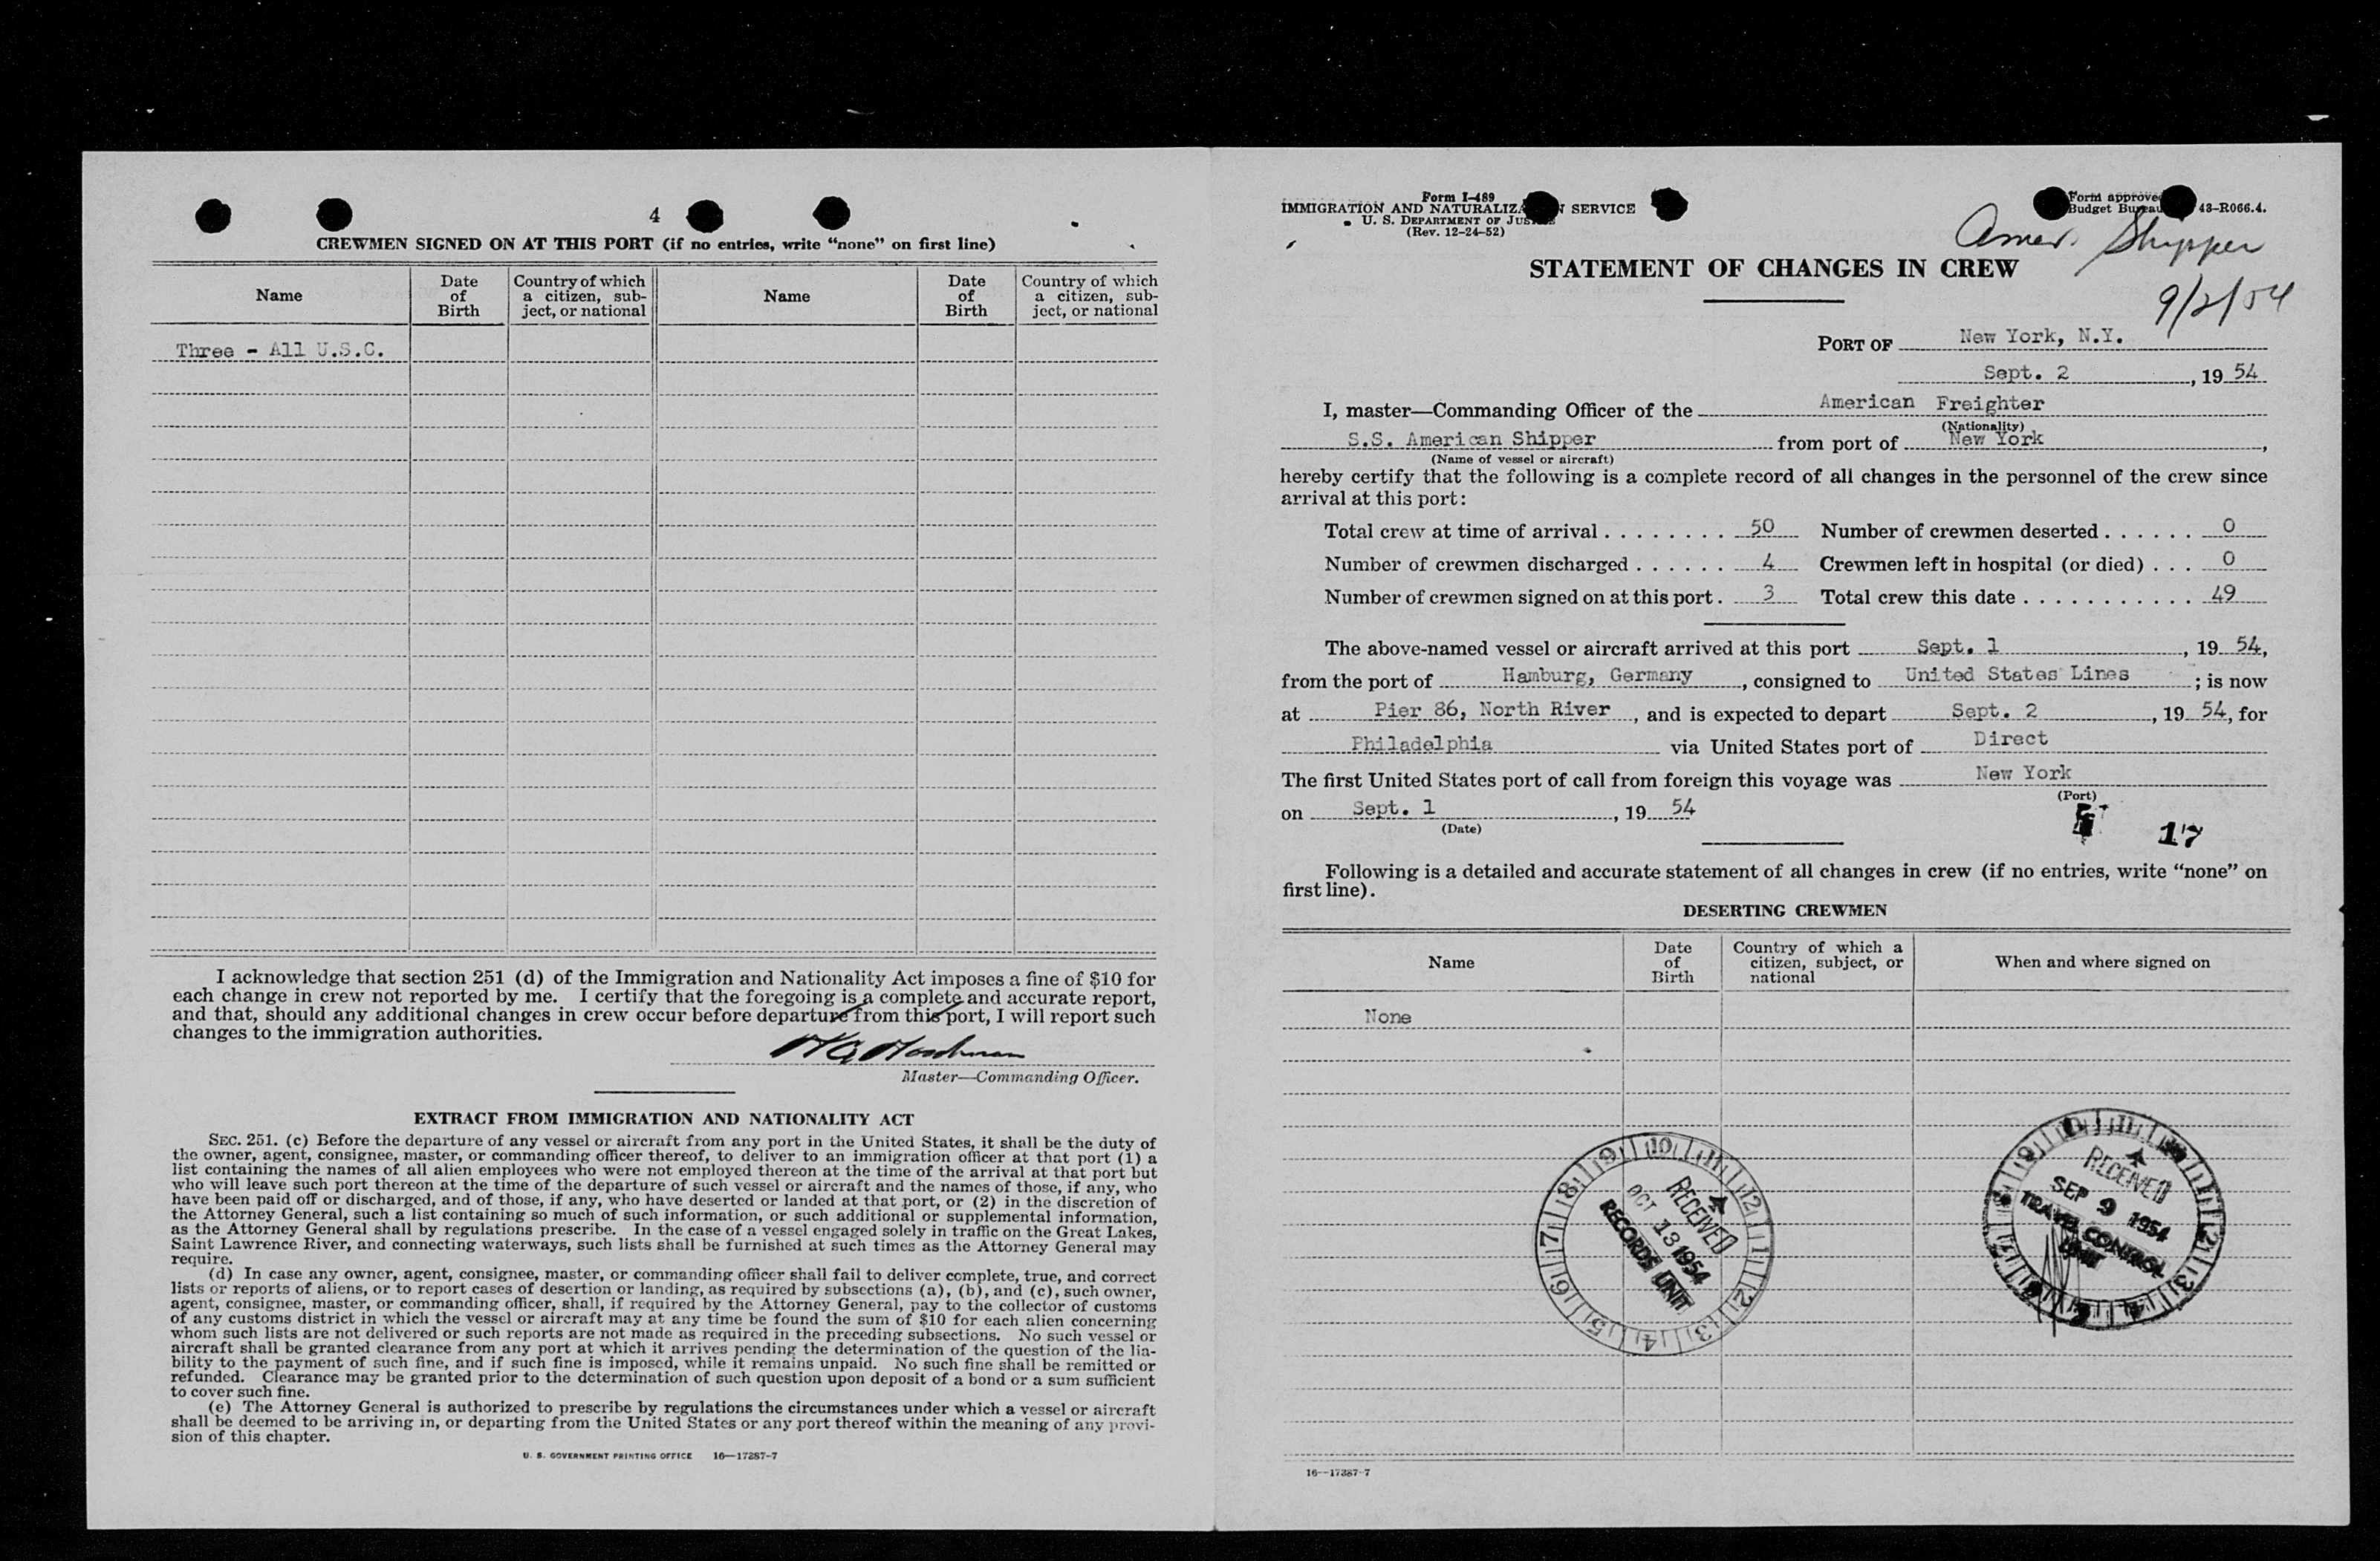 4
CREWMEN SIGNED ON AT THIS PORT (if no entries, write “none” on first line)
Name
Date of Birth
Country of which a citizen, subject, or national
Name
Date of Birth
Country of which a citizen, subject, or national
Three - All U.S.C.
I acknowledge that section 251 (d) of the Immigration and Nationality Act imposes a fine of $10 for
each change in crew not reported by me. I certify that the foregoing is a complete and accurate report,
and that, should any additional changes in crew occur before departure from this port, I will report such
changes to the immigration authorities.
Master—Commanding Officer.
EXTRACT FROM IMMIGRATION AND NATIONALITY ACT
SEC. 251. (c) Before the departure of any vessel or aircraft from any port in the United States, it shall be the duty of
the owner, agent, consignee, master, or commanding officer thereof, to deliver to an immigration officer at that port (1) a
list containing the names of all alien employees who were not employed thereon at the time of the arrival at that port but
who will leave such port thereon at the time of the departure of such vessel or aircraft and the names of those, if any, who
have been paid off or discharged, and of those, if any, who have deserted or landed at that port, or (2) in the discretion of
the Attorney General, such a list containing so much of such information, or such additional or supplemental information,
as the Attorney General shall by regulations prescribe. In the case of a vessel engaged solely in traffic on the Great Lakes,
Saint Lawrence River, and connecting waterways, such lists shall be furnished at such times as the Attorney General may
require.
(d) In case any owner, agent, consignee, master, or commanding officer shall fail to deliver complete, true, and correct
lists or reports of aliens, or to report cases of desertion or landing, as required by subsections (a), (b), and (c), such owner,
agent, consignee, master, or commanding officer, shall, if required by the Attorney General, pay to the collector of customs
of any customs district in which the vessel or aircraft may at any time be found the sum of $10 for each alien concerning
whom such lists are not delivered or such reports are not made as required in the preceding subsections. No such vessel or
aircraft shall be granted clearance from any port at which it arrives pending the determination of the question of the lia-
bility to the payment of such fine, and if such fine is imposed, while it remains unpaid. No such fine shall be remitted or
refunded. Clearance may be granted prior to the determination of such question upon deposit of a bond or a sum sufficient
to cover such fine.
(e) The Attorney General is authorized to prescribe by regulations the circumstances under which a vessel or aircraft
shall be deemed to be arriving in, or departing from the United States or any port thereof within the meaning of any provi-
sion of this chapter.
U. S. GOVERNMENT PRINTING OFFICE 16—17287-7
Form I-489
IMMIGRATION AND SERVICE
U. S. DEPARTMENT OF
(Rev. 12-24-52)
Form
Budget 43-R066.4.
Amer. Shipper
9/2/54
STATEMENT OF CHANGES IN CREW
PORT OF New York, N.Y.
Sept. 2, 19 54
I, master—Commanding Officer of the American Freighter
(Nationality)
S.S. American Shipper from port of New York,
(Name of vessel or aircraft)
hereby certify that the following is a complete record of all changes in the personnel of the crew since
arrival at this port:
Total crew at time of arrival . . . . . . . . 50 Number of crewmen deserted . . . . . . 0
Number of crewmen discharged . . . . . . 4 Crewmen left in hospital (or died) . . . 0
Number of crewmen signed on at this port . 3 Total crew this date . . . . . . . . . . . 49
The above-named vessel or aircraft arrived at this port Sept. 1, 19 54,
from the port of Hamburg, Germany, consigned to United States Lines; is now
at Pier 86, North River, and is expected to depart Sept. 2, 19 54, for
Philadelphia via United States port of Direct
The first United States port of call from foreign this voyage was New York
(Port)
on Sept. 1, 19 54
(Date)
17
Following is a detailed and accurate statement of all changes in crew (if no entries, write “none” on
first line).
DESERTING CREWMEN
Name
Date of Birth
Country of which a citizen, subject, or national
When and where signed on
None
RECEIVED
OCT 13 1954
RECORDS UNIT
RECEIVED
SEP 9 1954
TRAVEL CONTROL
UNIT
16—17287-7